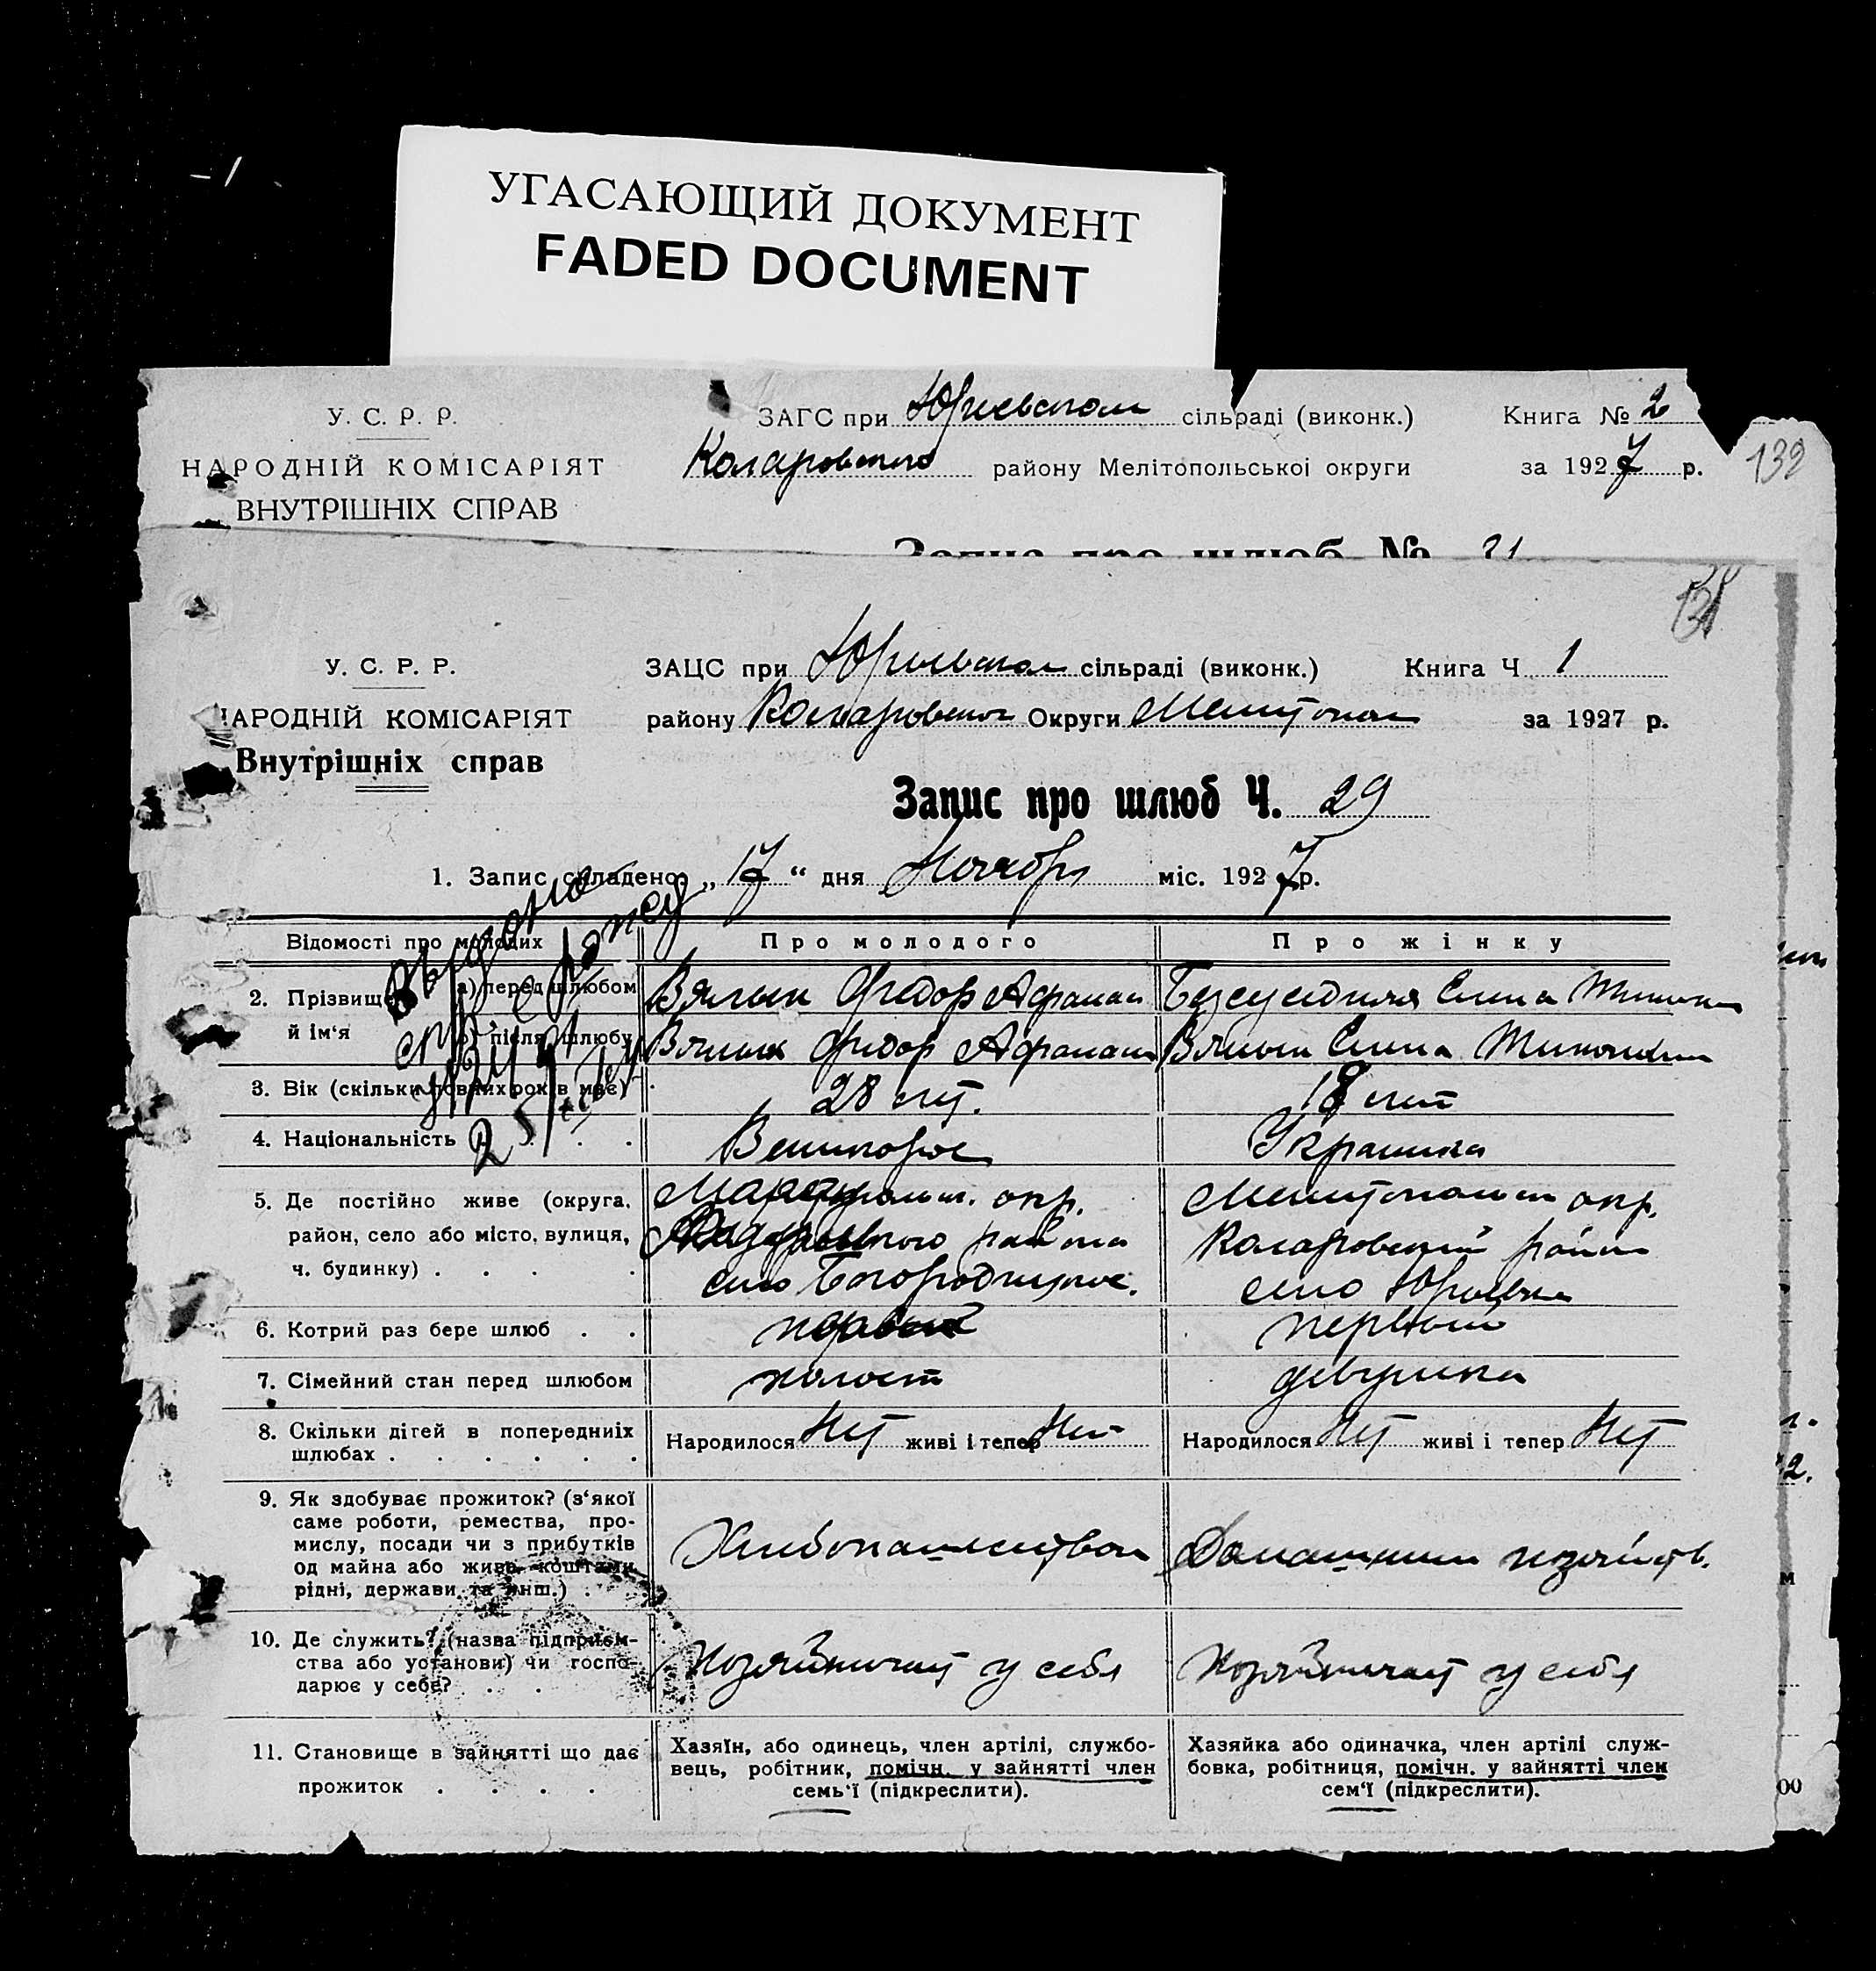 УГАСАЮЩИЙ ДОКУМЕНТ
FADED DOCUMENT
У. С. Р. Р.
НАРОДНІЙ КОМІСАРІЯТ
ВНУТРІШНІХ СПРАВ
ЗАГС при Юрьевском сільраді (виконк.) Книга № 2
Коларовского району Мелітопольської округи за 1927 р.
132
Запис про шлюб № 31
У. С. Р. Р.
НАРОДНІЙ КОМІСАРІЯТ
Внутрішніх справ
ЗАЦС при Юрьевском сільраді (виконк.) Книга Ч 1
району Коларовског Округи Мелитопол за 1927 р.
Запис про шлюб Ч. 29
1. Запис складено „17“ дня Ноября міс. 1927 р.
Відомості про молодих
Про молодого
Про жінку
2. Прізвище й ім‘я
а) перед шлюбом
Вялык Федор Афанас
Елена
б) після шлюбу
Вялык Федор Афанас
Вялык Елена
3. Вік (скільки повних років має)
28 лет.
18 лет
4. Національність . . .
Великорос
Украинка
5. Де постійно живе (округа,
район, село або місто, вулиця,
ч. будинку) . . . .
окр.
района
село Богородицкое.
Мелитопольск окр.
Коларовский район
село Юрьевка
6. Котрий раз бере шлюб . .
первый
первый
7. Сімейний стан перед шлюбом
холост
девушка
8. Скільки дітей в попередниіх
шлюбах . . . . . .
Народилося Нет живі і тепер Нет
Народилося Нет живі і тепер Нет
9. Як здобуває прожиток? (з‘якої
саме роботи, ремества, про-
мислу, посади чи з прибутків
од майна або живе коштами
рідні, держави та инш.) .
Хлебопашеством
Домашним хозяйств.
10. Де служить? (назва підприєм-
ства або установи) чи госпо-
дарює у себе? . .
Хозяйничает у себя
Хозяйничает у себя
11. Становище в зайнятті що дає
прожиток . . . .
Хазяїн, або одинець, член артілі, службо-
вець, робітник, помічн. у зайнятті член
семь‘ї (підкреслити).
Хазяйка або одиначка, член артілі служ-
бовка, робітниця, помічн. у зайнятті член
сем‘ї (підкреслити).